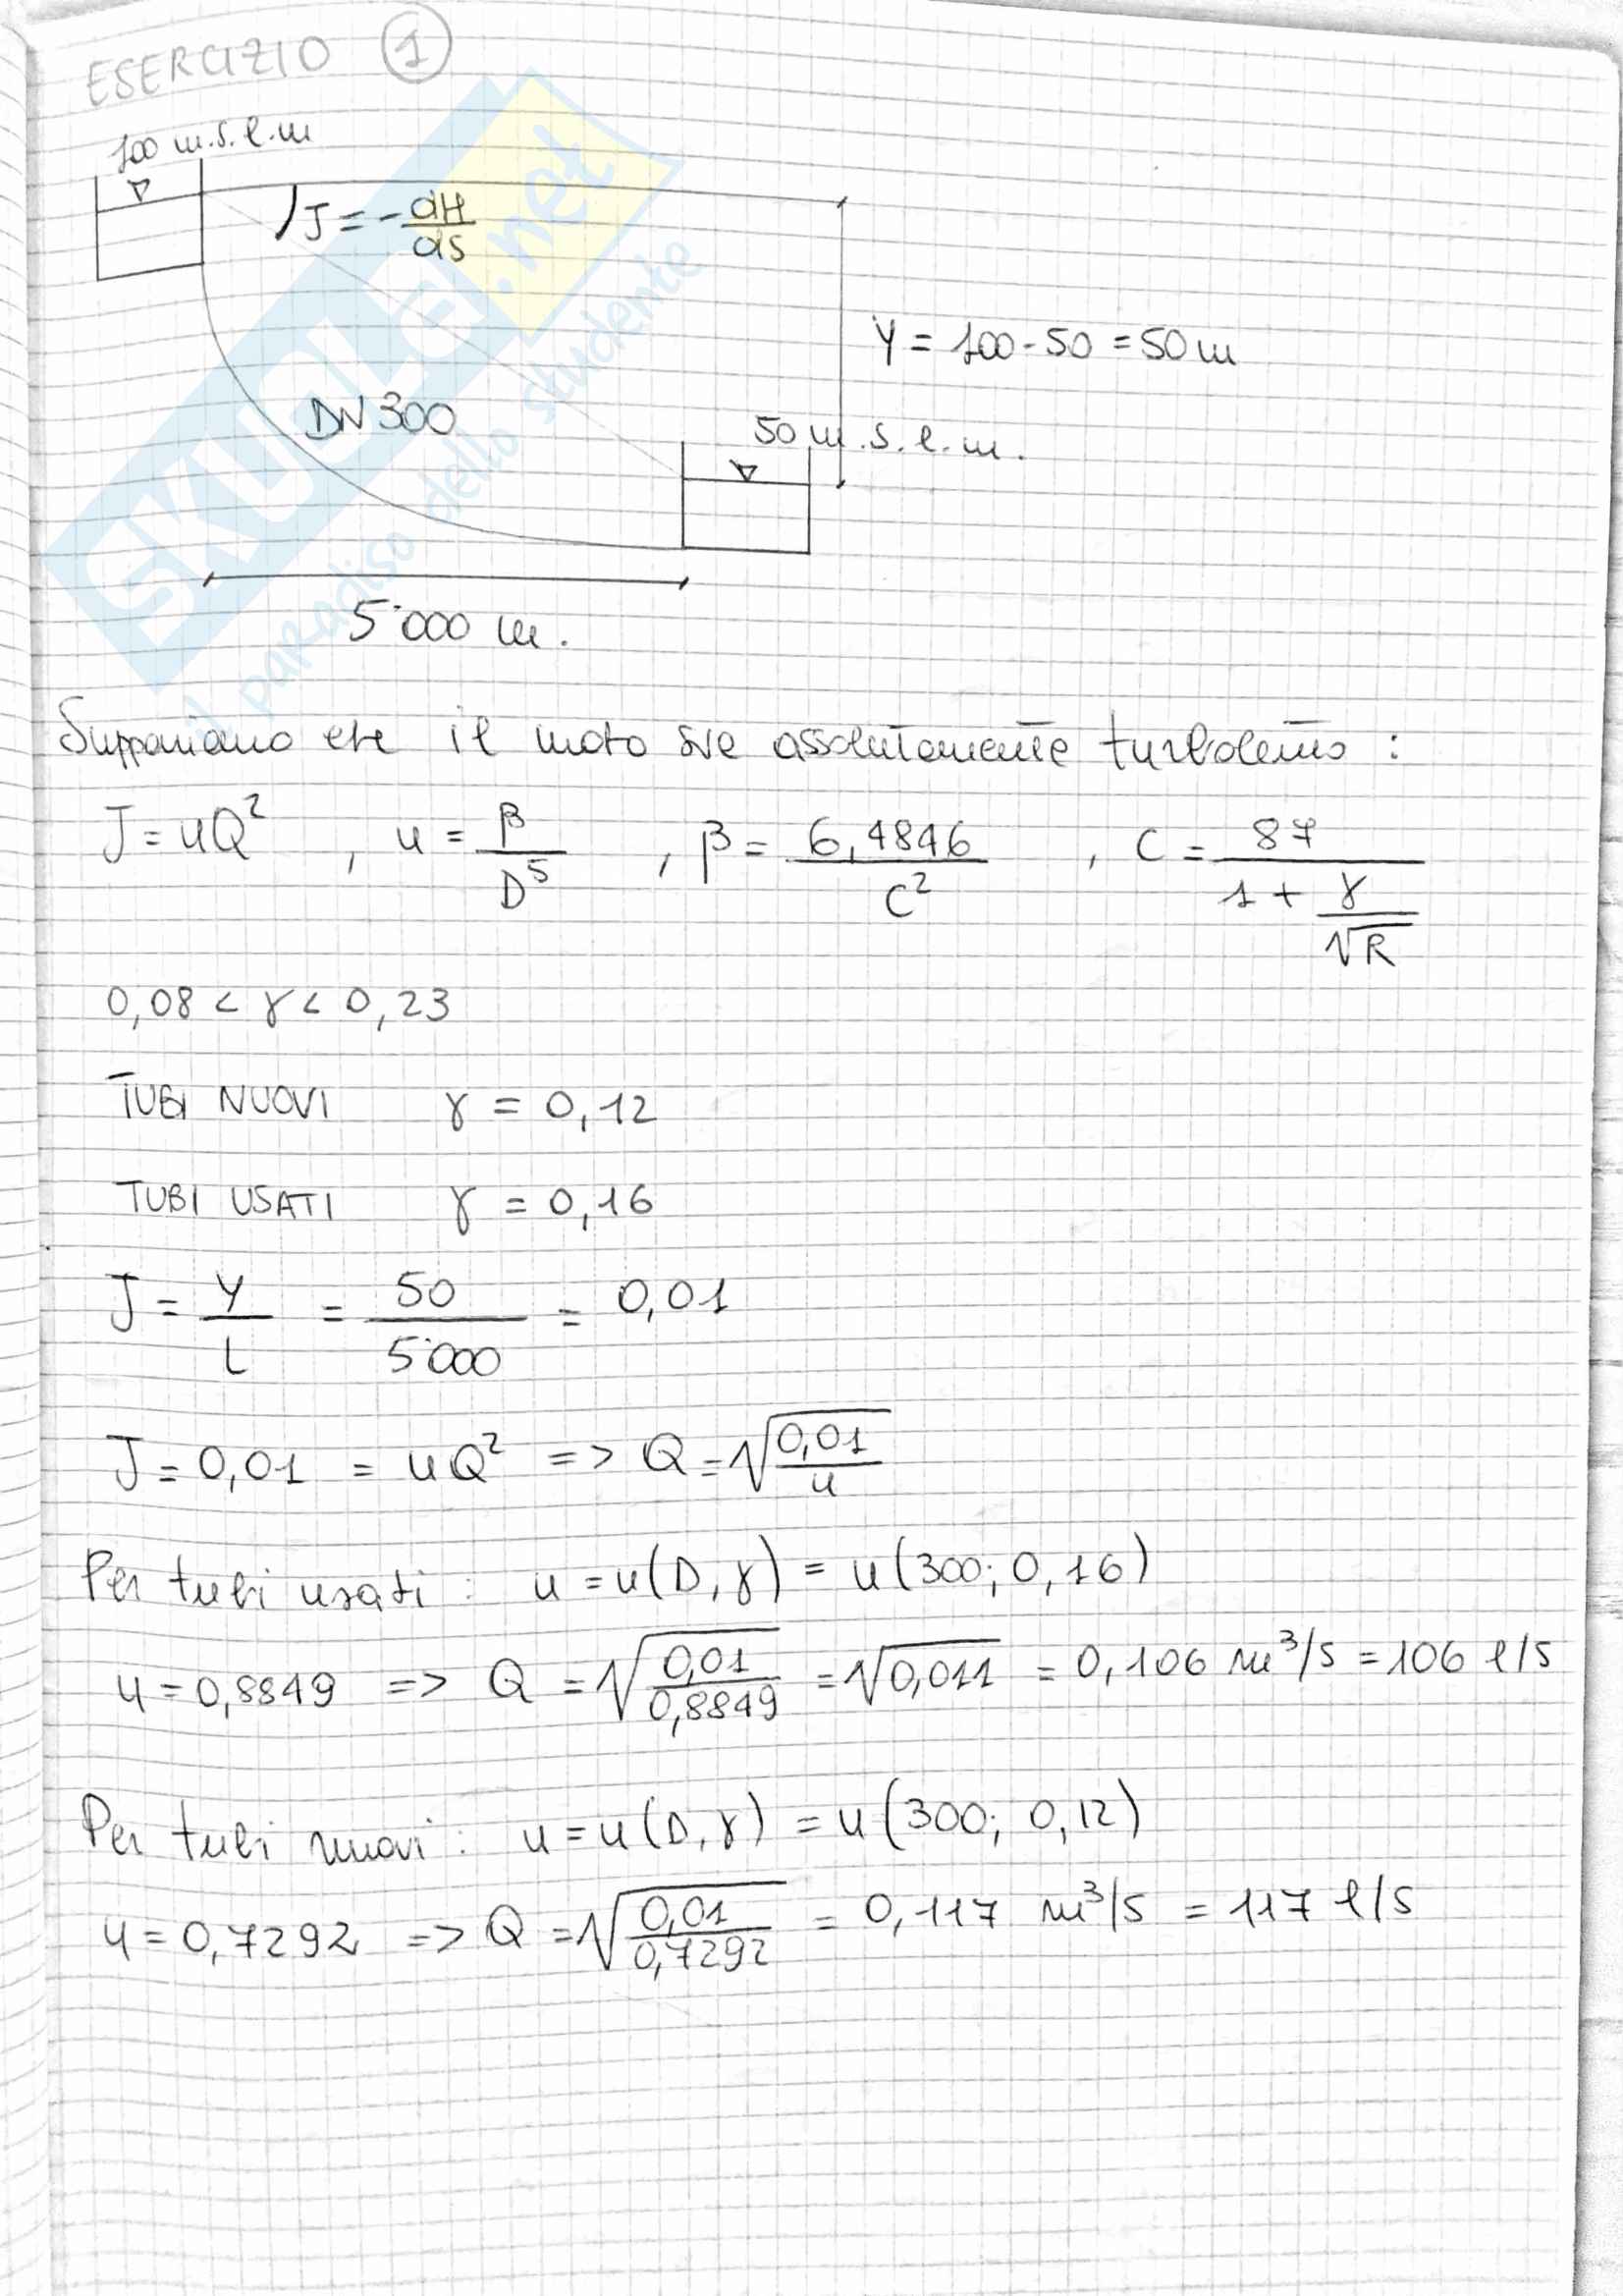 ESERCIZIO 1
100 m.s.l.m
J = - dH/ds
Y = 100 - 50 = 50 m
DN 300
50 m.s.l.m.
5'000 m.
SKUOLA.net
il paradiso dello studente
Supponiamo che il moto sia assolutamente turbolento :
J = uQ² , u = β/D⁵ , β = 6,4846/C² , C = 87/(1 + γ/√R)
0,08 < γ < 0,23
TUBI NUOVI γ = 0,12
TUBI USATI γ = 0,16
J = Y/L = 50/5'000 = 0,01
J = 0,01 = uQ² => Q = √(0,01/u)
Per tubi usati : u = u(D, γ) = u(300; 0,16)
u = 0,8849 => Q = √(0,01/0,8849) = √0,011 = 0,106 m³/s = 106 l/s
Per tubi nuovi : u = u(D, γ) = u(300; 0,12)
u = 0,7292 => Q = √(0,01/0,7292) = 0,117 m³/s = 117 l/s